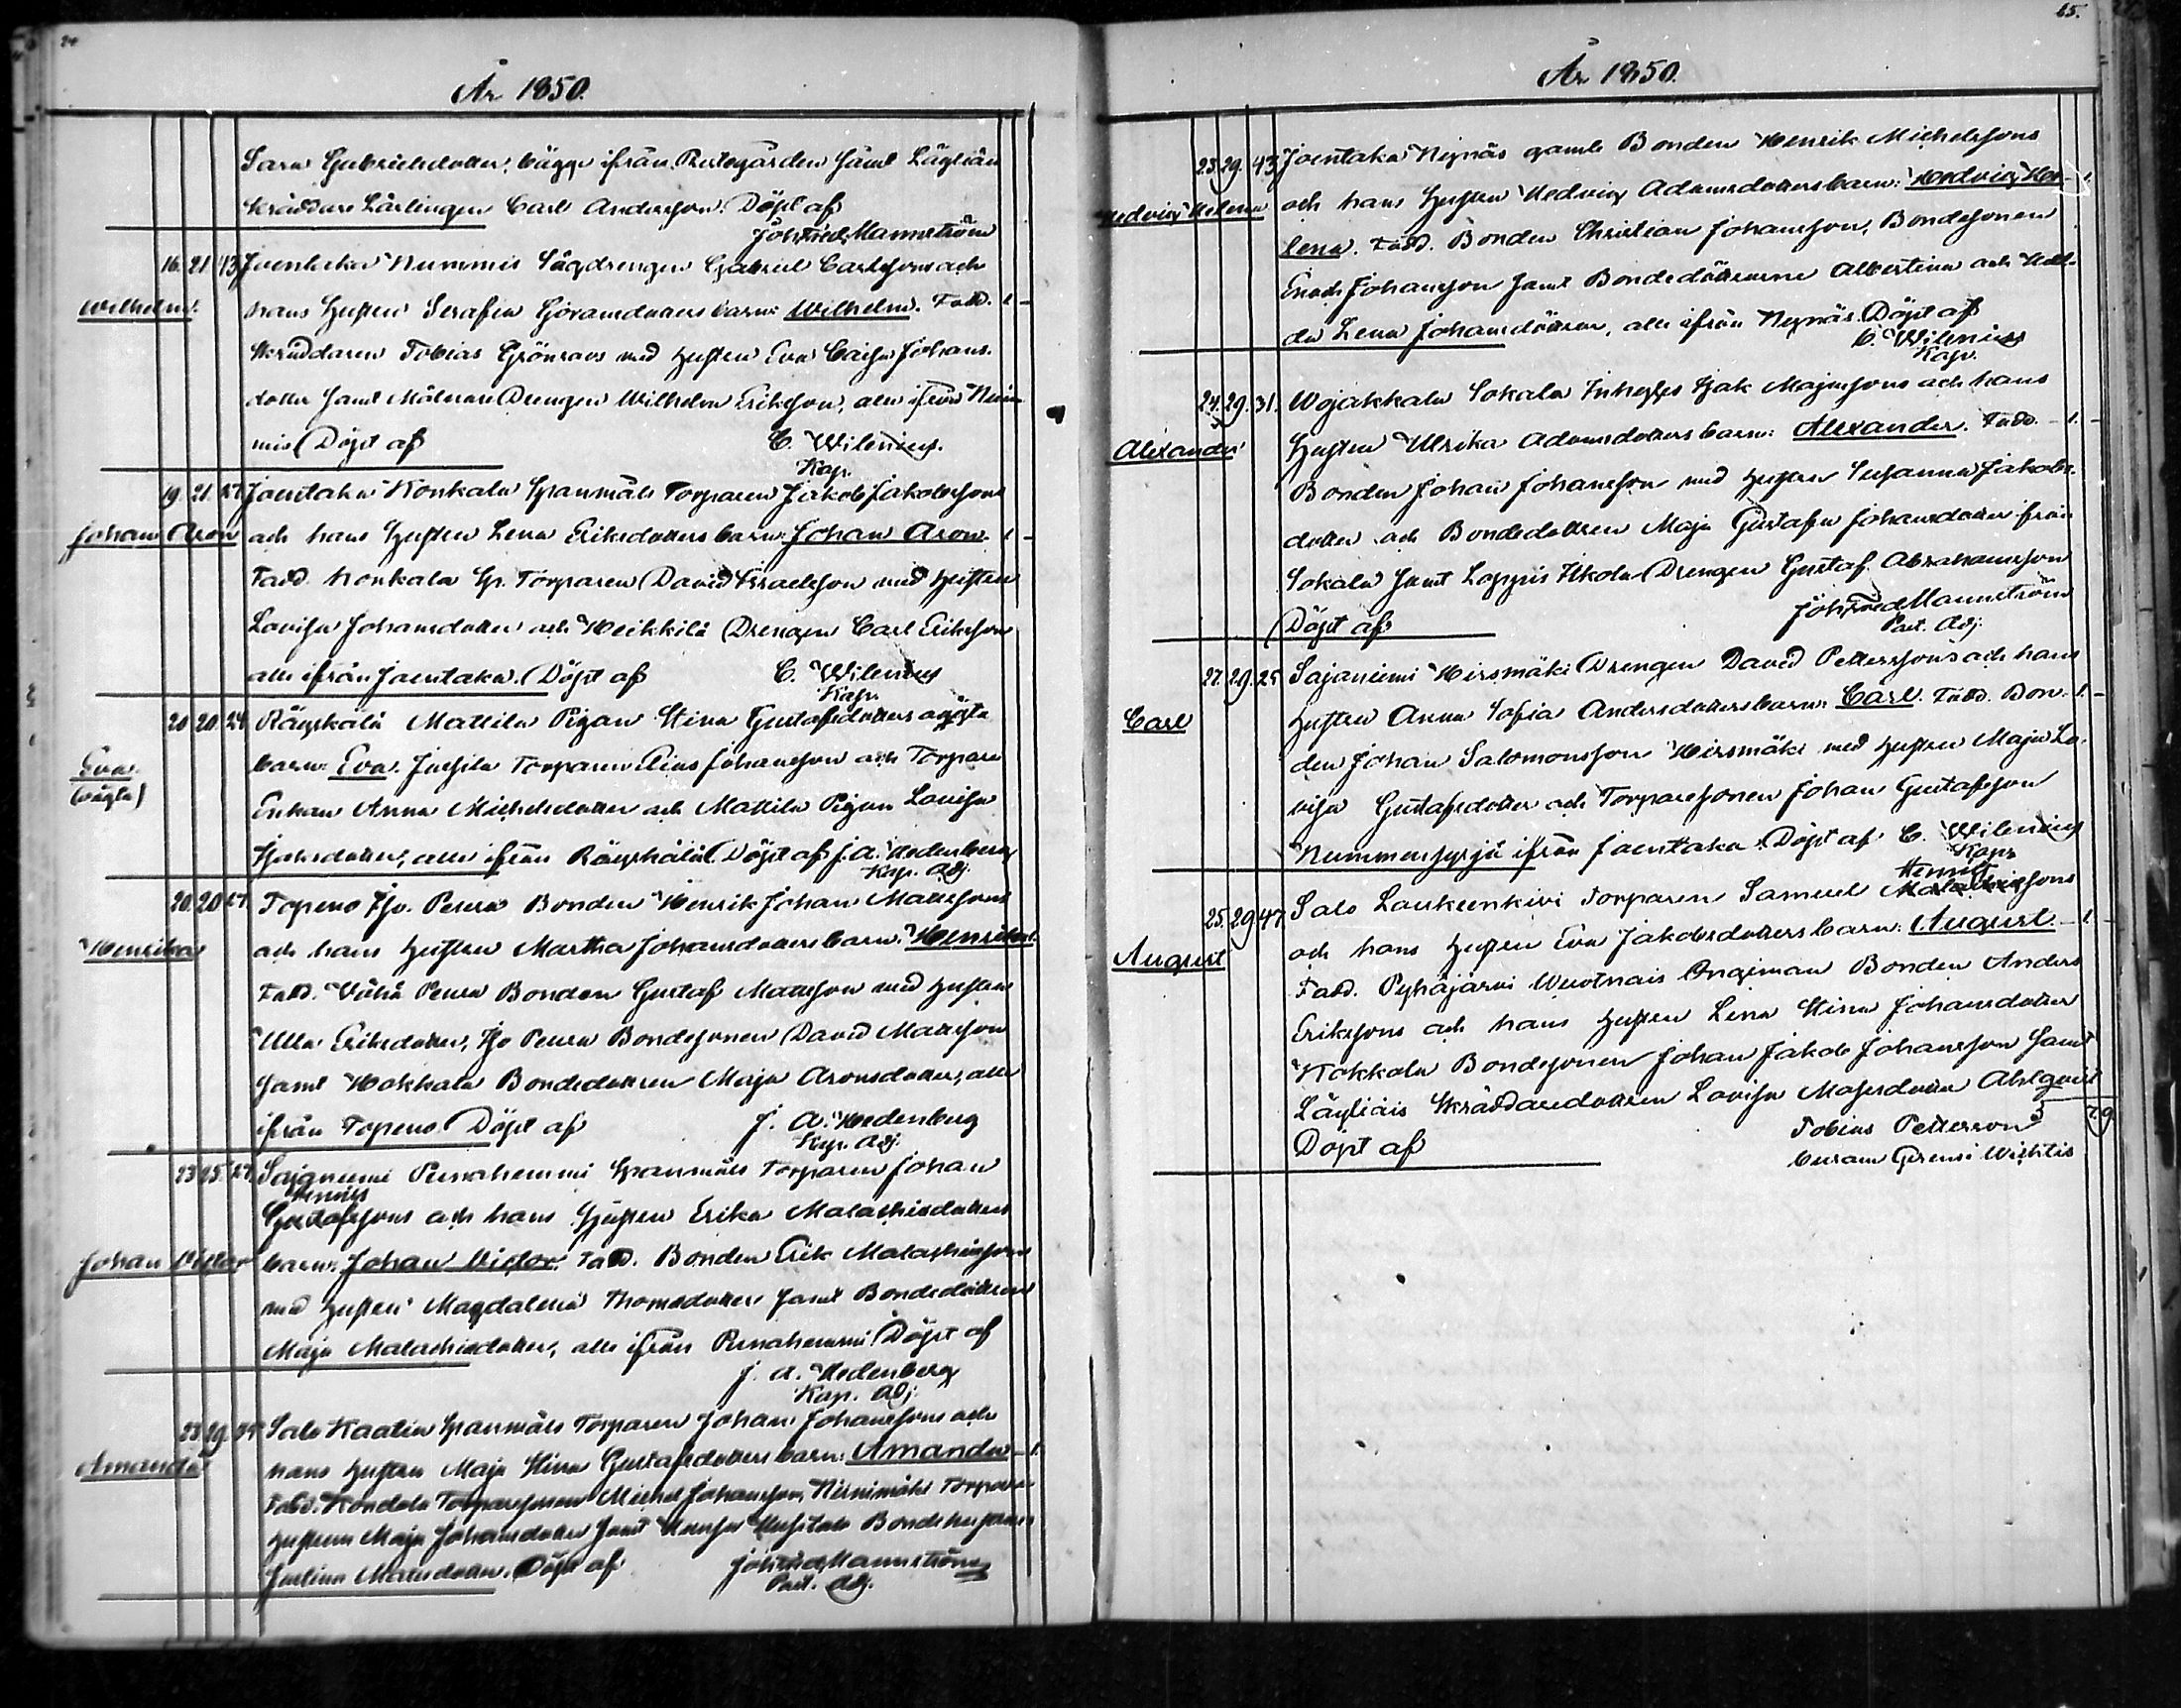 År 1850.
Sara Gabrielsdotter, bägge ifrån Prestegården samt Läyliän
Skräddare Lärlingen Carl Andersson. Döpt af
Joh Fred Mannström
16. 21. 43 Joentaka Nummis Sågdrengen Gabriel Carlssons och
Wilhelm. hans Hustru Serafia Göransdotters barn: Wilhelm. Fadd. 1 -
Skräddaren Tobias Grönroos med Hustru Eva Caisa Johans-
dotter samt Målare Drengen Wilhelm Eriksson, alla ifrån Num-
mis Döpt af C. Wilenius.
Kap.
19. 21. 27 Joentaka Konkala Spanmåls Torparen Jakob Jakobssons
Johan Aron och hans Hustru Lena Eriksdotters barn: Johan Aron. 1 -
Fadd. Konkala Sp. Torparen David Israelsson med Hustru
Lovisa Johansdotter och Heikkilä Drengen Carl Eriksson
alla ifrån Joentaka. Döpt af C. Wilenius
Kap.
20 20. 24 Räyskälä Mattila Pigan Stina Gustafsdotters oägta
Eva. (oägta) barn: Eva. Jussila Torparen Elias Johansson och Torpare
Enkan Anna Michelsdotter och Mattila Pigan Lovisa
Isaksdotter, alla ifrån Räyskälä Döpt af J. A. Hedenberg
Kap. Adj.
20. 20 27. Topeno Iso Peura Bonden Henrik Johan Mattssons
Henrika och hans Hustru Martha Johansdotters barn: Henrika 1.
Fadd. Vähä Peura Bonden Gustaf Mattsson med Hustru
Ulla Eriksdotter, Iso Peura Bondesonen David Mattsson
samt Hokkala Bondedottren Maja Aronsdotter, alla
ifrån Topeno. Döpt af J. A. Hedenberg
Kap. Adj.
23 25. 27. Sajaniemi Spanmåls Torparen Johan
Gustafssons och hans Hustru Erika Malachiedotters
Johan Victor barn: Johan Victor. Fadd. Bonden Erik Malachiesson
med Hustru Magdalena Thomasdotter samt Bondedottren
Maja Malachiedotter, alla ifrån Döpt af
J. A. Hedenberg
Kap. Adj.
23. 29. Salo Kaatia Spanmåls Torparen Johan Johanssons och
Amanda hans Hustru Maja Stina Gustafsdotters barn: Amanda - 1.
Fadd. Torparesonen Michel Johansson, Torpare
Hustrun Maja Johansdotter samt Bondehustrun
Justina Matsdotter. Döpt af Joh Fred Mannström
Past. Adj.
65.
År 1850.
23. 29. 43 Joentaka Nyynäs gamle Bonden Henrik Michelssons
Hedvig Helena och hans Hustru Hedvig Adamsdotters barn: Hedvig He- 1.
lena. Fadd. Bonden Christian Johansson, Bondesonen
Enoch Johansson samt Bondedöttrarna Albertina och Hel-
da Lena Johansdöttrar, alla ifrån Nyynäs. Döpt af
C. Wilenius
Kap.
24. 29. 31. Wojakkala Sokala Inhyses Isak Majassons och hans
Alexander Hustru Ulrika Adamsdotters barn: Alexander. Fadd. - 1. -
Bonden Johan Johansson med Hustru Susanna Jakobs-
dotter och Bondedottren Maja Gustafva Johansdotter ifrån
Sokala samt Loppis Ilkola Drengen Gustaf Abrahamsson
Döpt af Joh Fred Mannström
Past. Adj.
27. 29. 25 Sajaniemi Hirsmäki Drengen David Petterssons och hans
Carl Hustru Anna Sofia Andersdotters barn: Carl. Fadd. Bon- 1. -
den Johan Salomonsson Hirsmäki med Hustru Maja Lo-
visa Gustafsdotter och Torparesonen Johan Gustafsson
Nummensyrjä ifrån Joentaka. Döpt af C. Wilenius
Kap.
25. 29 47 Salo Laukeenkivi Torparen Samuel Malachiessons
August och hans Hustru Eva Jakobsdotters barn: August. - 1 -
Fadd. Pyhäjärvi Wuotnais Ongiman Bonden Anders
Erikssons och hans Hustru Lena Stina Johansdotter
Kokkola Bondesonen Johan Jakob Johansson samt
Läyliäis Skräddaredottren Lovisa Mosesdotter Ahlqvist
Döpt af Tobias Petterson 3 7.9
Curam Gerens i Wichtis